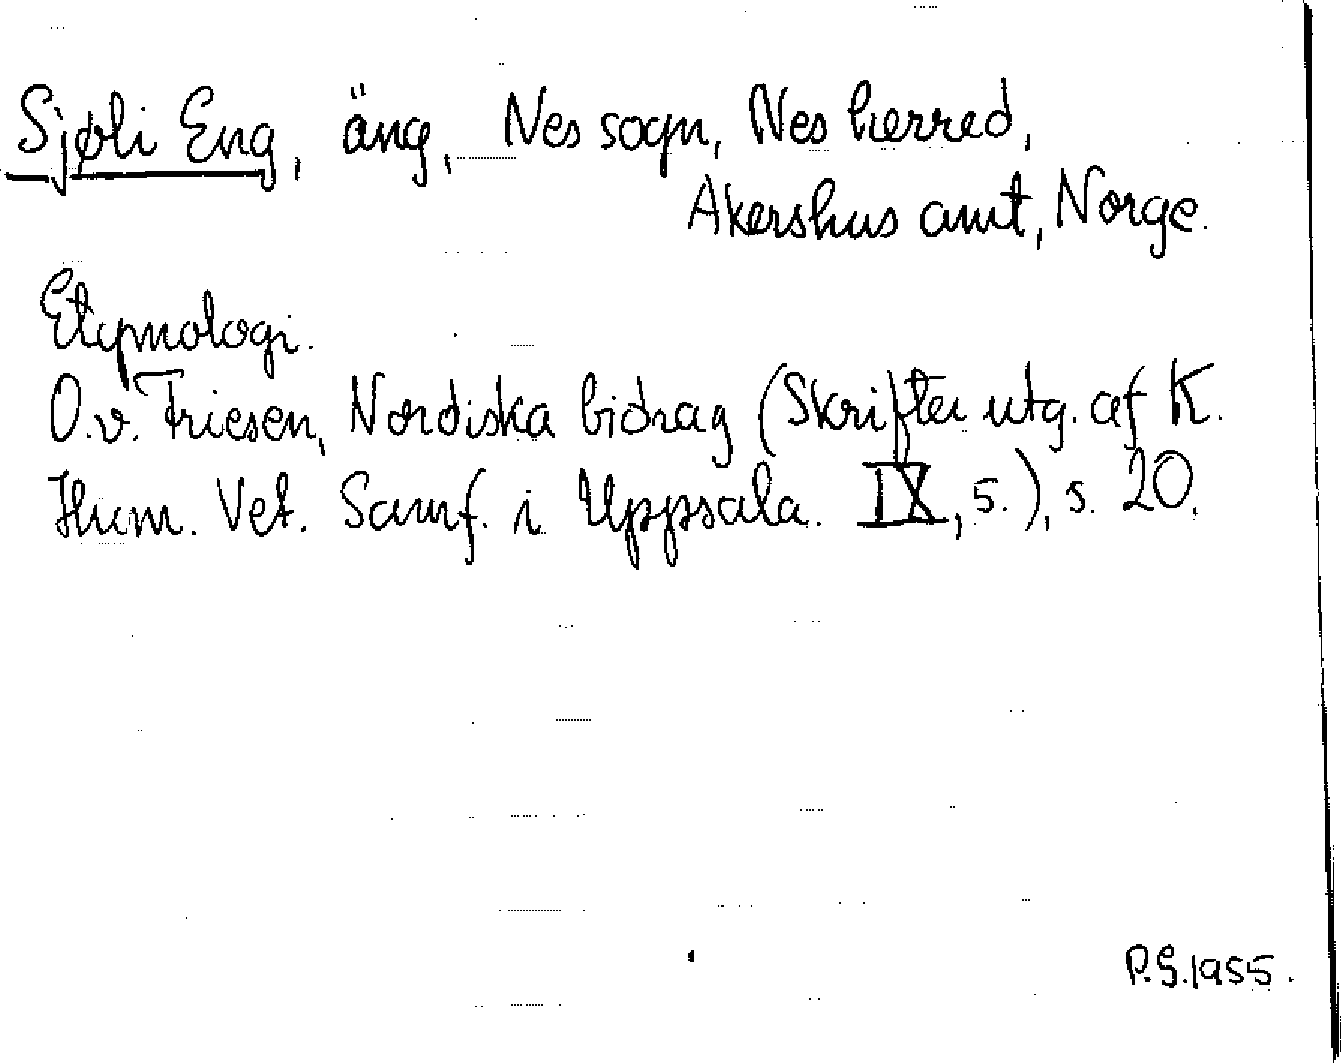 Sjøli Eng, äng, Nes sogn, Nes herred,
Akershus amt, Norge.
Etymologi.
O.v. Friesen, Nordiska bidrag (Skrifter utg. af K.
Hum. Vet. Samf. i Uppsala. IX, 5.), s. 20.
P.G. 1955.